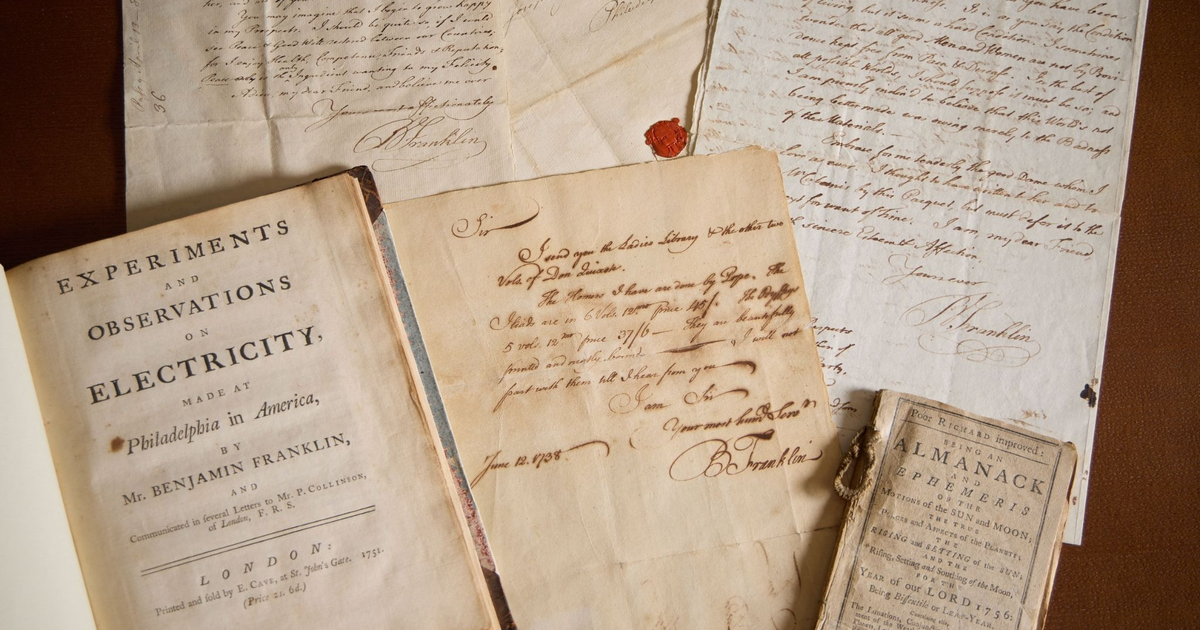 You may imagine that I begin to grow happy
in my Prospects. I should be quite so, if I could
see Peace & Good Will restored between our Countries;
for I enjoy Health, Competence, Friends & Reputation.
Peace is the only Ingredient wanting to my Felicity.
Adieu, my dear Friend, and believe me ever
Yours most affectionately
B Franklin
36
EXPERIMENTS
AND
OBSERVATIONS
ON
ELECTRICITY,
MADE AT
Philadelphia in America,
BY
Mr. BENJAMIN FRANKLIN,
AND
Communicated in several Letters to Mr. P. COLLINSON,
of London, F. R. S.
LONDON:
Printed and sold by E. CAVE, at St. John's Gate. 1751.
(Price 2s. 6d.)
Sir
I send you the Ladies Library & the other two
Vols of Don Quixote.
The Homers I have are done by Pope. The
Iliads are in 6 Vols 12mo price 45/. The Odyssey
5 vols. 12mo price 37/6 — They are beautifully
printed and neatly bound I will not
part with them till I hear from you
I am Sir
Your most humb Serv
B Franklin
June 12. 1738.
you have been
of living, but it seems a hard Condition. I sometimes
wonder that all good Men and Women are not by Provi-
dence kept free from Pain & Disease. In the best of
all possible Worlds, I should suppose it must be so; and
I am piously inclin'd to believe that this World's not
being better made was owing merely to the Badness
of the Materials.
Embrace for me tenderly the good Dame whom I
love as ever. I thought to have written to her and to
by this Pacquet, but must defer it to the
for want of Time. I am, my dear Friend
sincere Esteem & Affection,
Yours ever
B Franklin
Poor RICHARD improved:
BEING AN
ALMANACK
AND
EPHEMERIS
OF THE
MOTIONS of the SUN and MOON;
THE TRUE
PLACES and ASPECTS of the PLANETS;
THE
RISING and SETTING of the SUN;
AND THE
Rising, Setting and Southing of the Moon,
FOR THE
YEAR of our LORD 1756:
Being Bissextile or LEAP-YEAR.
Containing also,
The Lunations, Conjunc